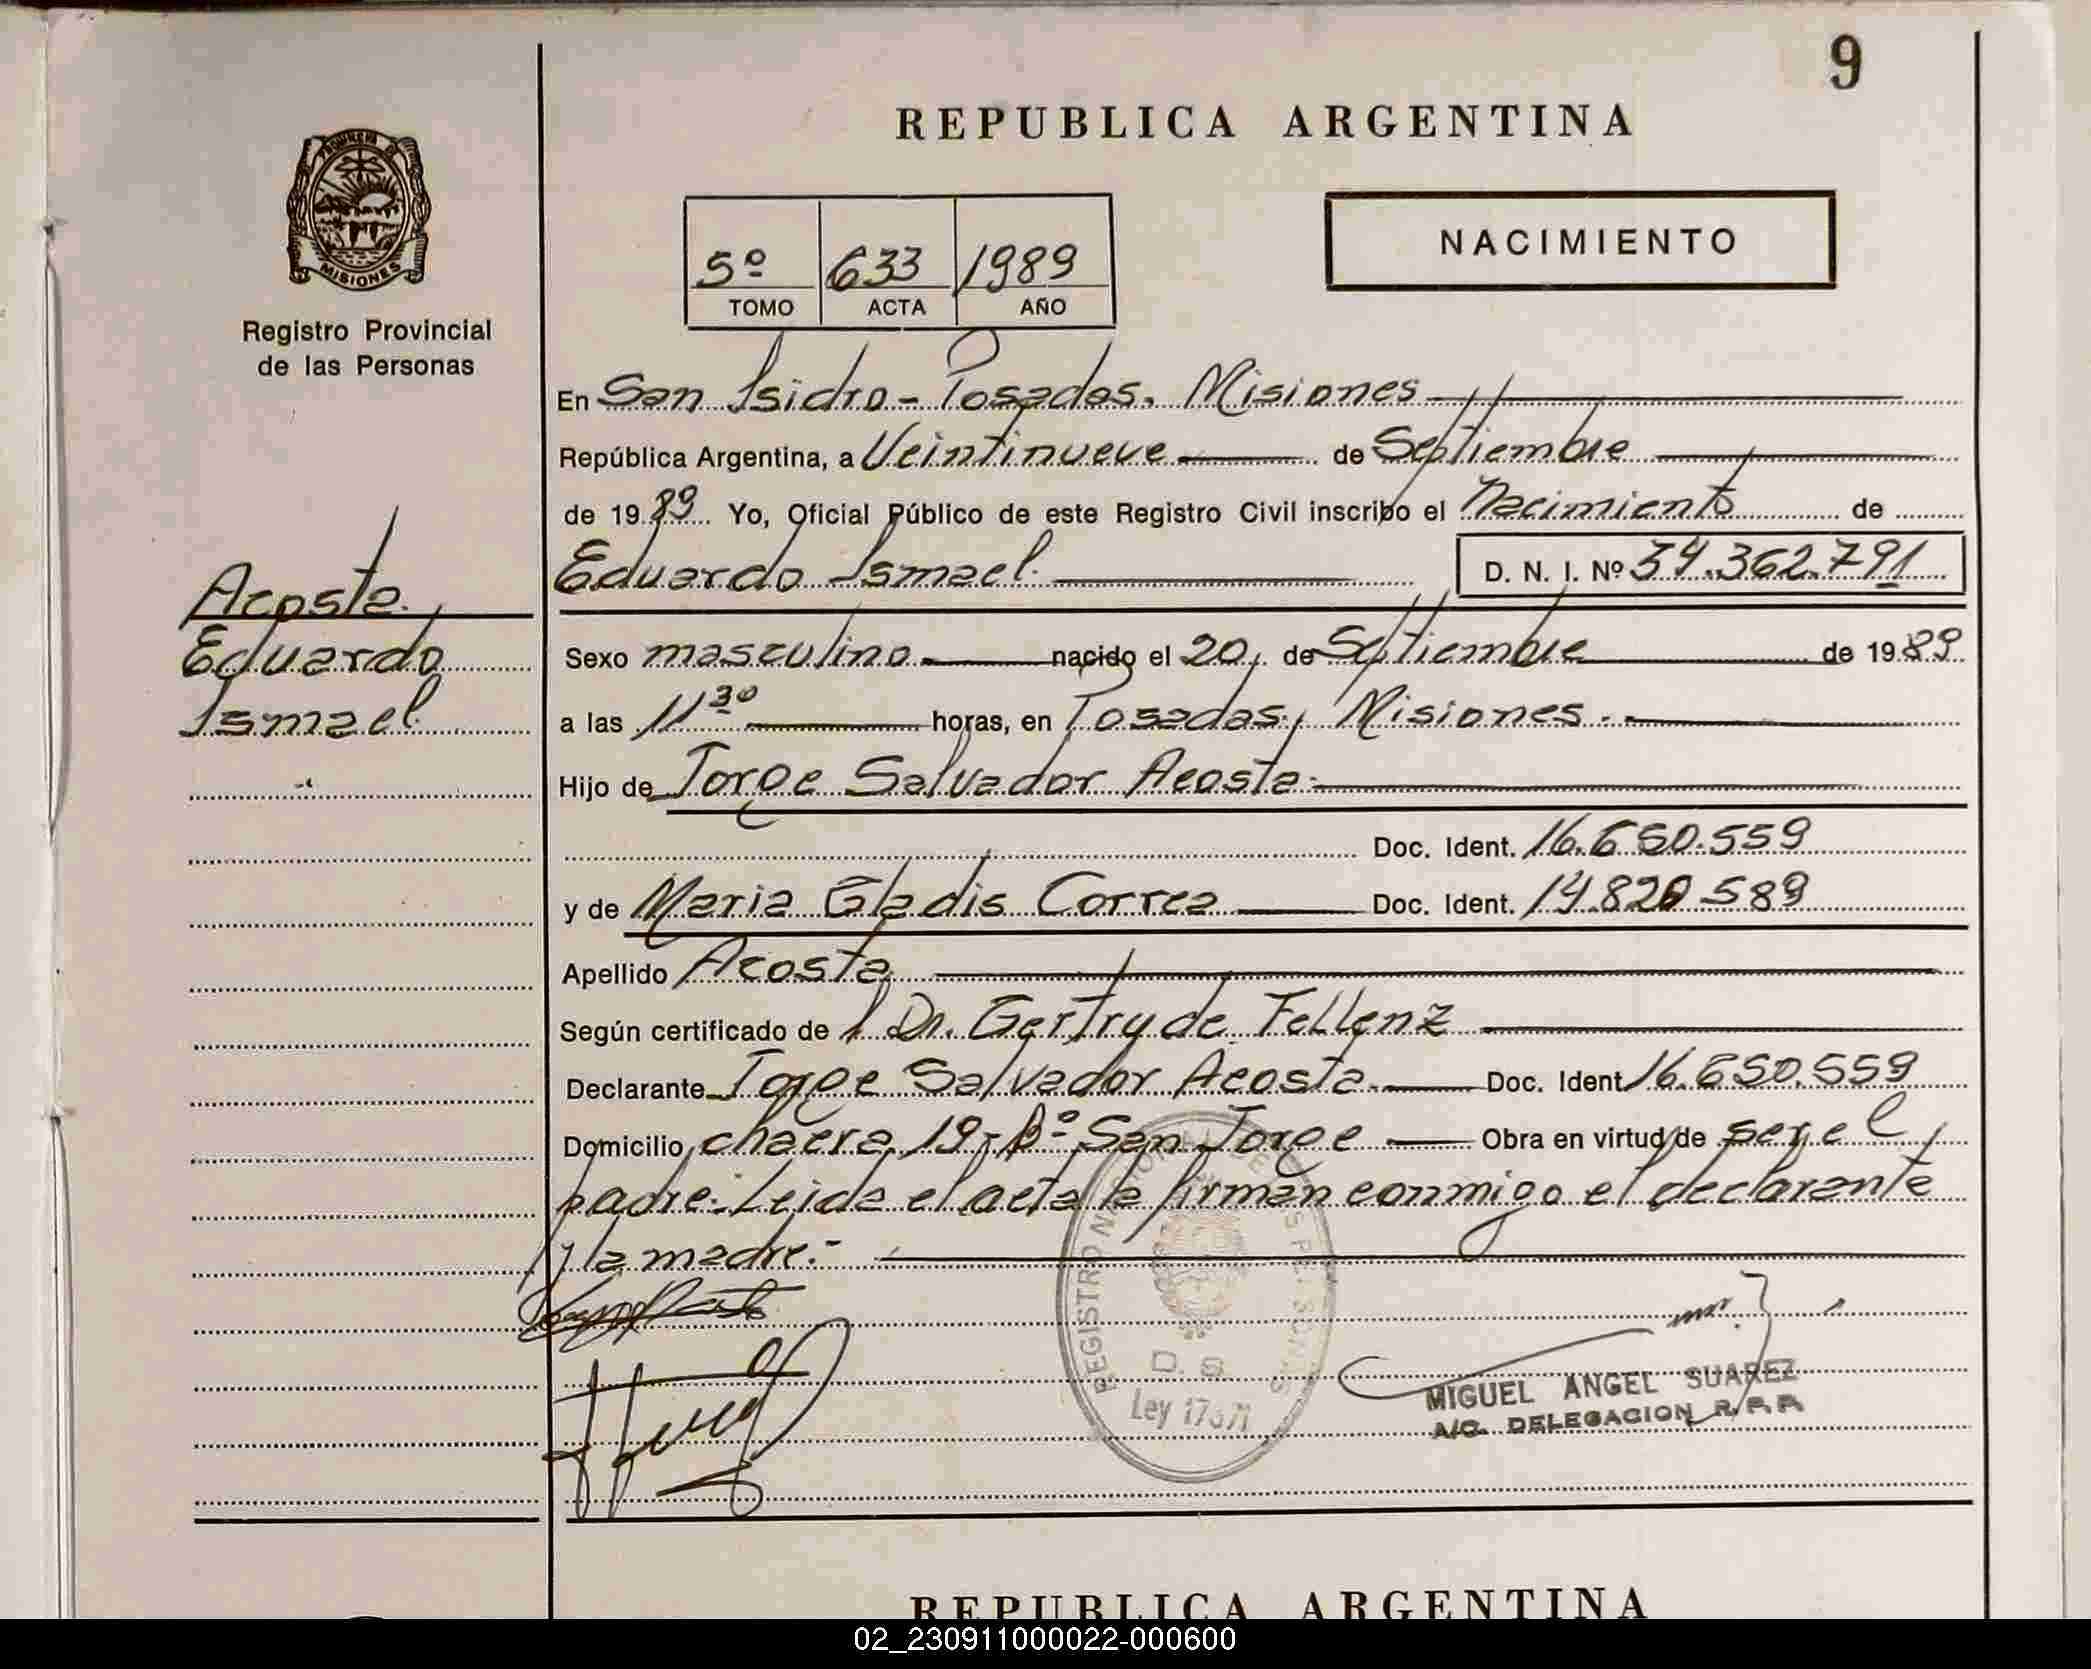 9
REPUBLICA ARGENTINA
PROVINCIA DE
MISIONES
Registro Provincial
de las Personas
NACIMIENTO
5º 633 1989
TOMO ACTA AÑO
En San Isidro - Posadas. Misiones
República Argentina, a Veintinueve de Septiembre
de 1989 Yo, Oficial Público de este Registro Civil inscribo el Nacimiento de
Eduardo Ismael. D. N. I. Nº 34.362.791
Acosta.
Eduardo
Ismael.
Sexo masculino. nacido el 20, de Septiembre de 1989
a las 11 30 horas, en Posadas, Misiones.
Hijo de Jorge Salvador Acosta
Doc. Ident. 16.650.559
y de Maria Gladis Correa Doc. Ident. 14.820.589
Apellido Acosta
Según certificado de Dr. Gertryde Fellenz
Declarante Jorge Salvador Acosta. Doc. Ident. 16.650.559
Domicilio chacra 19 - Bº San Jorge Obra en virtud de ser el
padre. Leida el acta la firman conmigo el declarante
y la madre.-
D. S.
Ley 17671
MIGUEL ANGEL SUAREZ
A/C. DELEGACION R. P. P.
REPUBLICA ARGENTINA
02_230911000022-000600